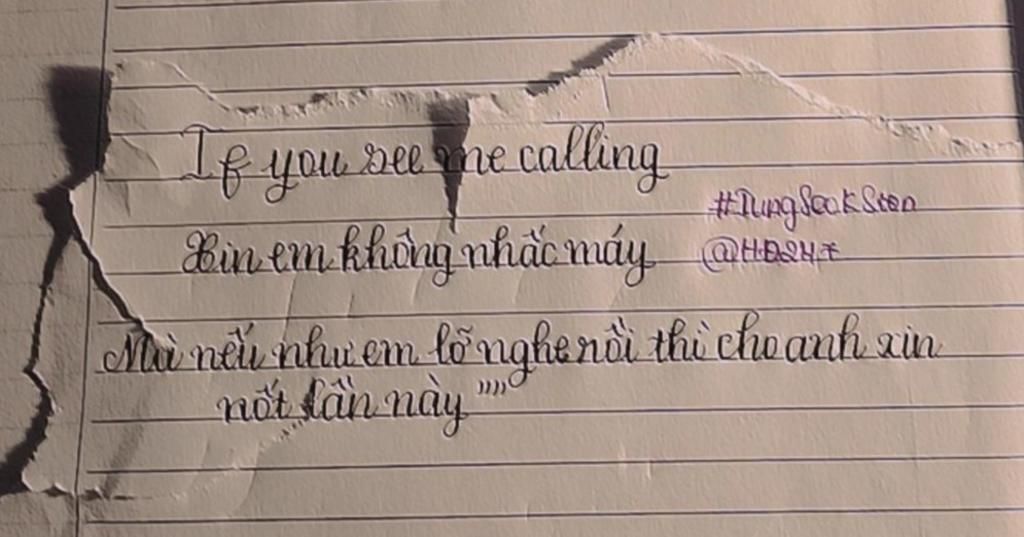 If you see me calling
Xin em không nhấc máy
#TungSeokSten
@HDS24*
Mà nếu như em lỡ nghe rồi thì cho anh xin
nốt lần này ""